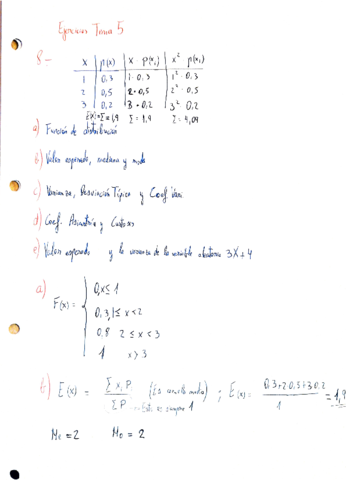 Ejercicios Tema 5
8- x | p(x) | x · p(x) | x² p(x)
1 | 0,3 | 1 · 0,3 | 1² · 0,3
2 | 0,5 | 2 · 0,5 | 2² · 0,5
3 | 0,2 | 3 · 0,2 | 3² 0,2
Σ = 1,9 Σ = 4,09
a) Función de distribución
b) Valor esperado, mediana y moda
c) Varianza, Desviación Típica y Coef Var.
d) Coef. Asimetría y Curtosis
e) Valor esperado y la varianza de la variable aleatoria 3X+4
a)
F(x) =
0, x≤1
0,3, 1≤x<2
0,8 2≤x<3
1 x>3
b) E(x) = Σ x, P / Σ P ; E(x) = 0,3+2·0,5+3·0,2 / 1 = 1,9
siempre 1
Me = 2 Mo = 2